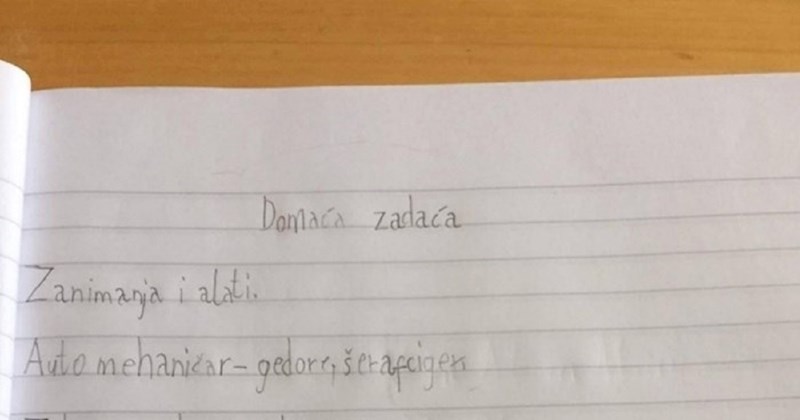 Domaća zadaća
Zanimanja i alati.
Auto mehaničar - gedore, šerafciger